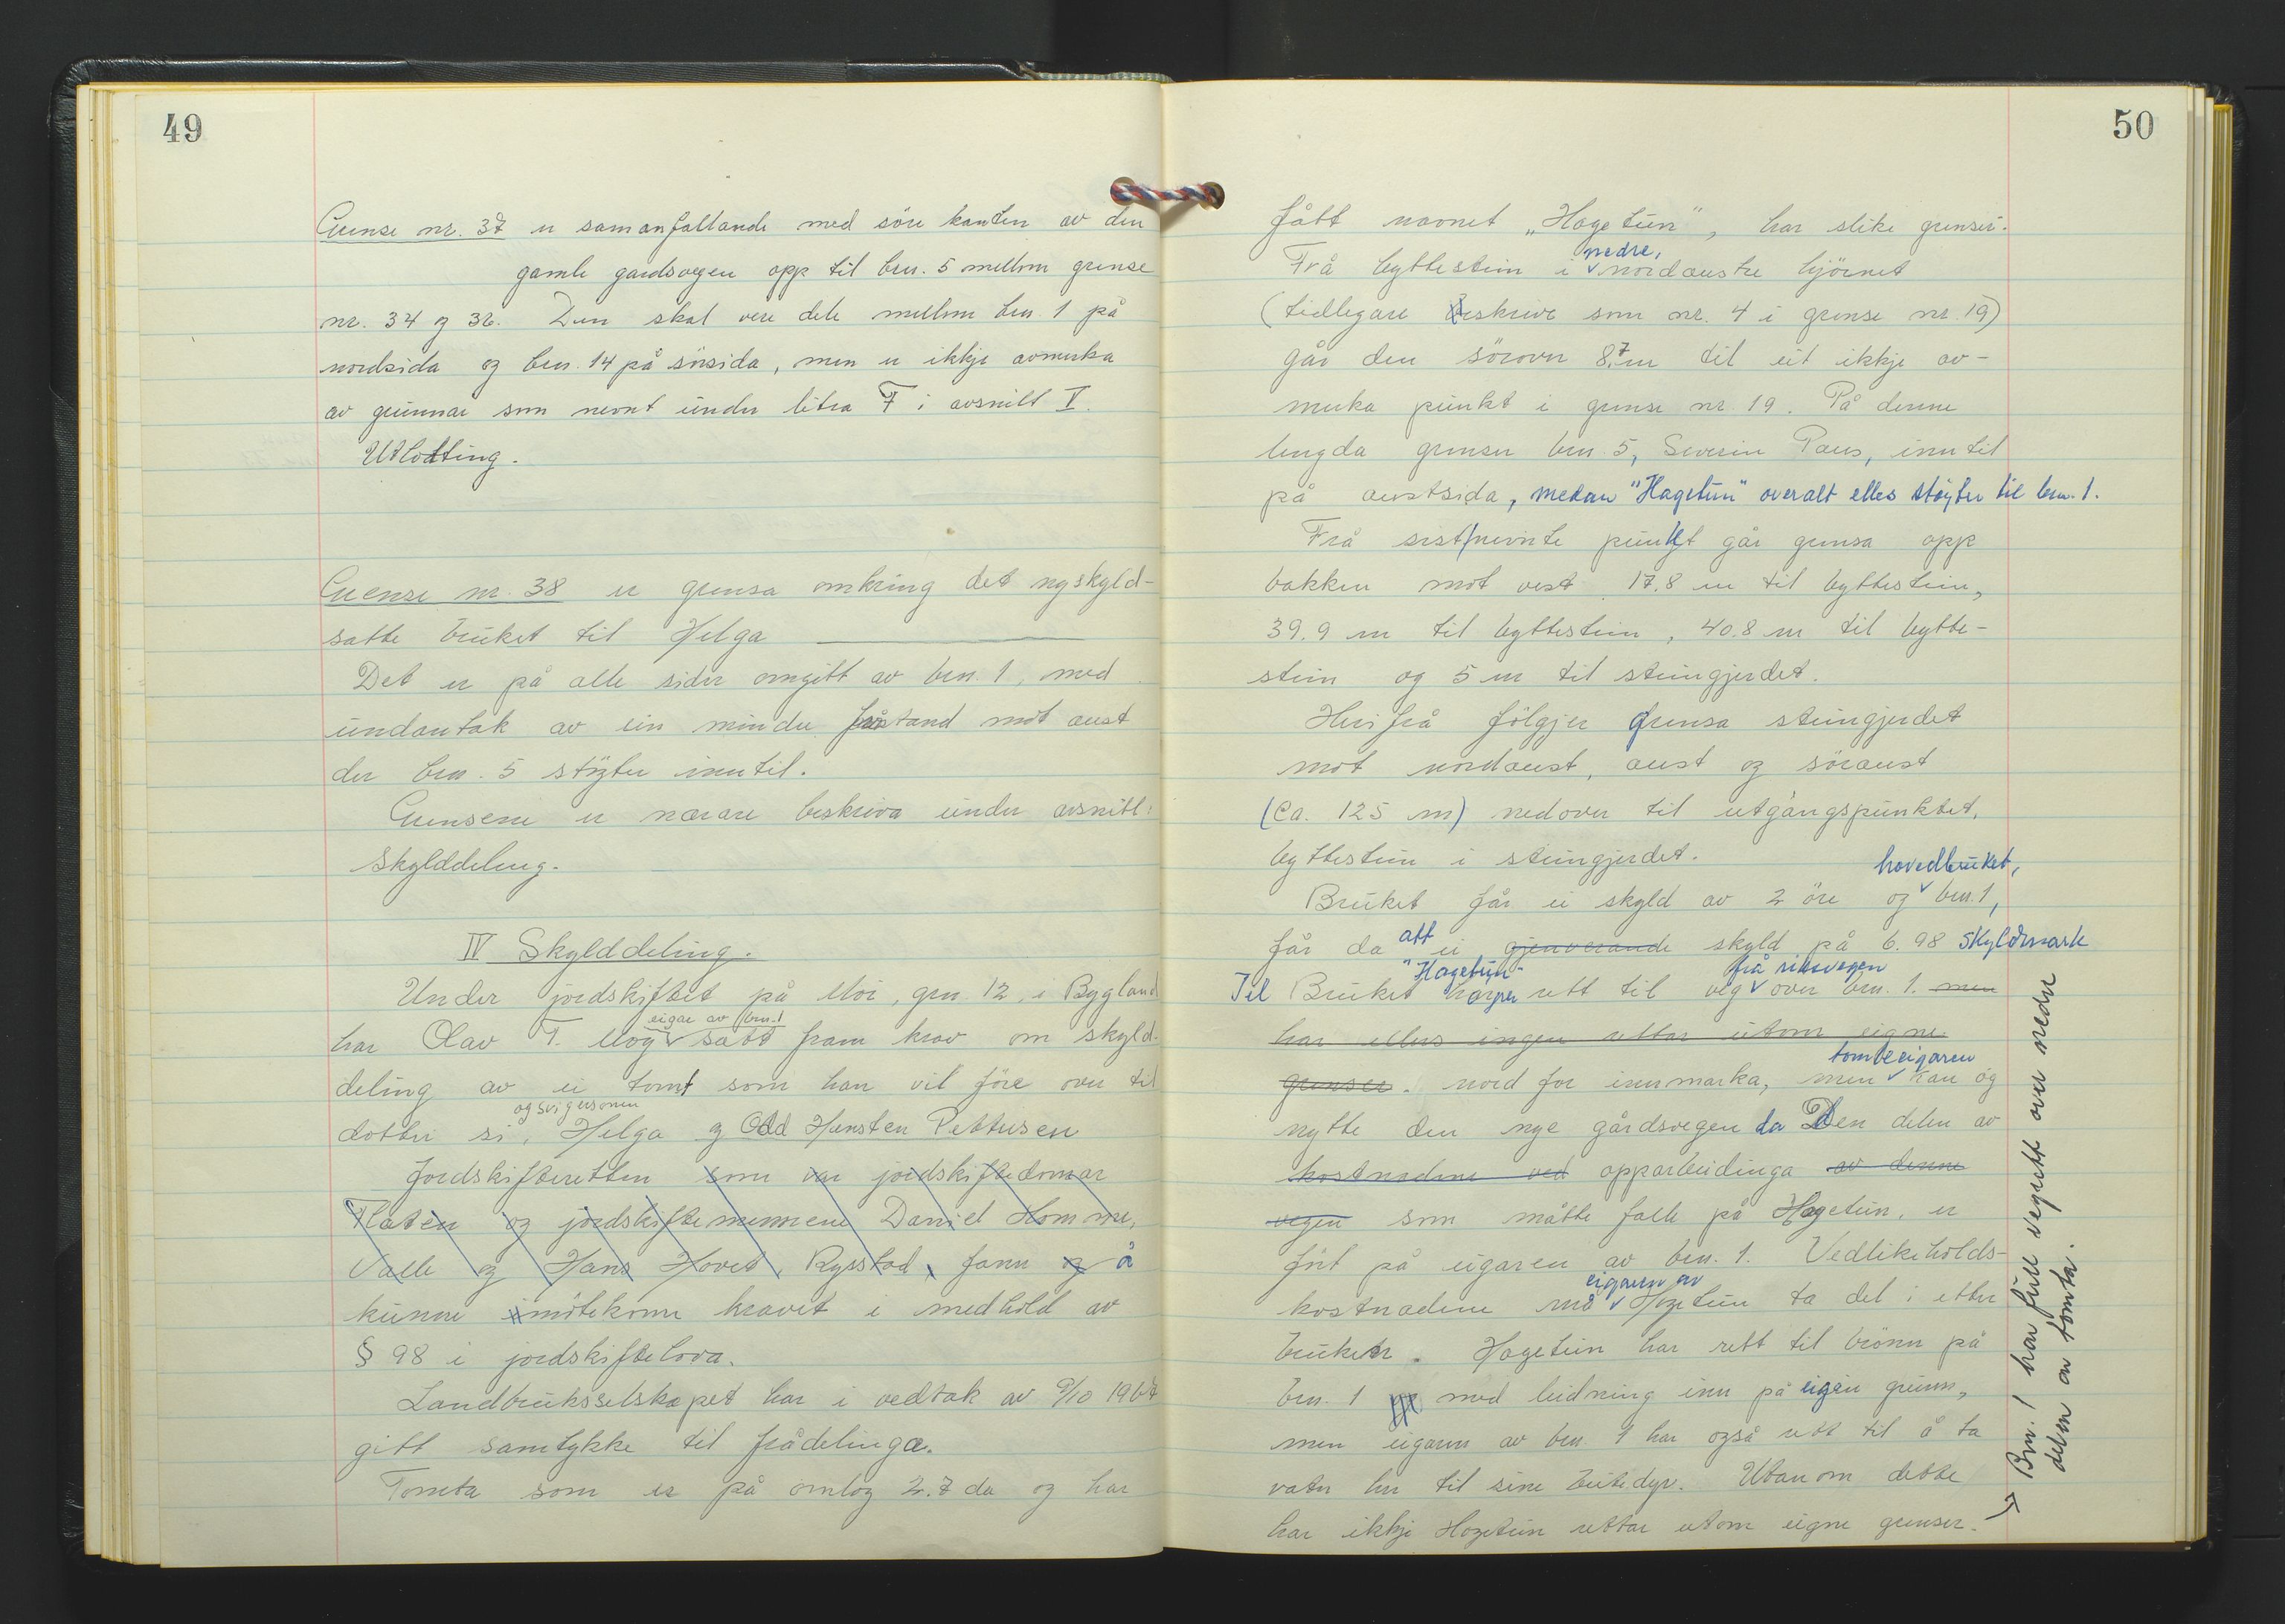 49
Grense nr. 37 er samanfallande med söre kanten av den
gamle gardsvegen opp til bru. 5 mellom grense
nr. 34 og 36. Den skal vere dele mellom bnr. 1 på
nordsida og bnr. 14 på sørsida, men er ikkje avmerka
av grunnar som nevnt under litra F i avsnitt V.
Utlodting.
Grense nr. 38 er grensa omkring det nyskyld-
satte bruket til Helga
Det er på alle sider omgitt av bnr. 1, med
undantak av ein mindre avstand mot aust
der bnr. 5 stöyter inntil.
Grensene er nærare beskriva under avsnitt:
Skylddeling.
IV Skylddeling.
Under jordskiftet på Moi, gnr. 12, i Bygland
eigar av bnr. 1
har Olav T. Moy satt fram krav om skyld-
deling av ei tomt som han vil före over til
og svigersonen
dotter si, Helga og Odd Hensten Pettersen
Jordskifteretten som var jordskiftedomar
Flaten og jordskiftemennene Daniel Homme,
Valle og Hans Hovet, Rysstad, fann og å
kunne imötekome kravet i medhold av
§ 98 i jordskiftelova.
Landbruksselskapet har i vedtak av 9/10 1967
gitt samtykke til frådelinga.
Tomta som er på omlag 2.7 da og har
50
fått navnet „Hagetun", har slike grenser.
nedre,
Frå byttestein i nordaustre hjörnet
(tidlegare beskrive som nr. 4 i grense nr. 19)
går den sörover 8,7 m til eit ikkje av-
merka punkt i grense nr. 19. På denne
lengda grenser bnr. 5, Severin Paus, inntil
på austsida, medan "Hagetun" overalt elles stöyter til bnr. 1.
Frå sistnevnte punkt går grensa opp
bakken mot vest 17.8 m til byttestein,
39.9 m til byttestein, 40.8 m til bytte-
stein og 5 m til steingjerdet.
Herifrå fölgjer grensa steingjerdet
mot nordaust, aust og söraust
(Ca. 125 m) nedover til utgångspunktet,
byttestein i steingjerdet.
hovedbruket,
Bruket får ei skyld av 2 öre og bnr. 1,
att
får da ei gjenverande skyld på 6.98 skyldmark
"Hagetun" frå riksvegen
Til Bruket hörer rett til veg over bnr. 1. men
har ellers ingen rettar utom eigne
tomteeigaren
grenser. nord for innmarka, men kan òg
nytte den nye gårdsvegen da Den delen av
kostnadene ved opparbeidinga av denne
vegen som måtte falle på Hagetun, er
fört på eigaren av bnr. 1. Vedlikeholds-
eigaren av
kostnadene må Hagetun ta del i etter
bruken. Hagetun har rett til brönn på
bnr. 1 med leidning inn på eigen grunn,
men eigaren av bnr. 1 har også rett til å ta
vatn her til sine beitedyr. Utanom dette
har ikkje Hagetun rettar utom eigne grenser.
Bnr. 1 har full vegrett over nedre
delen av tomta.